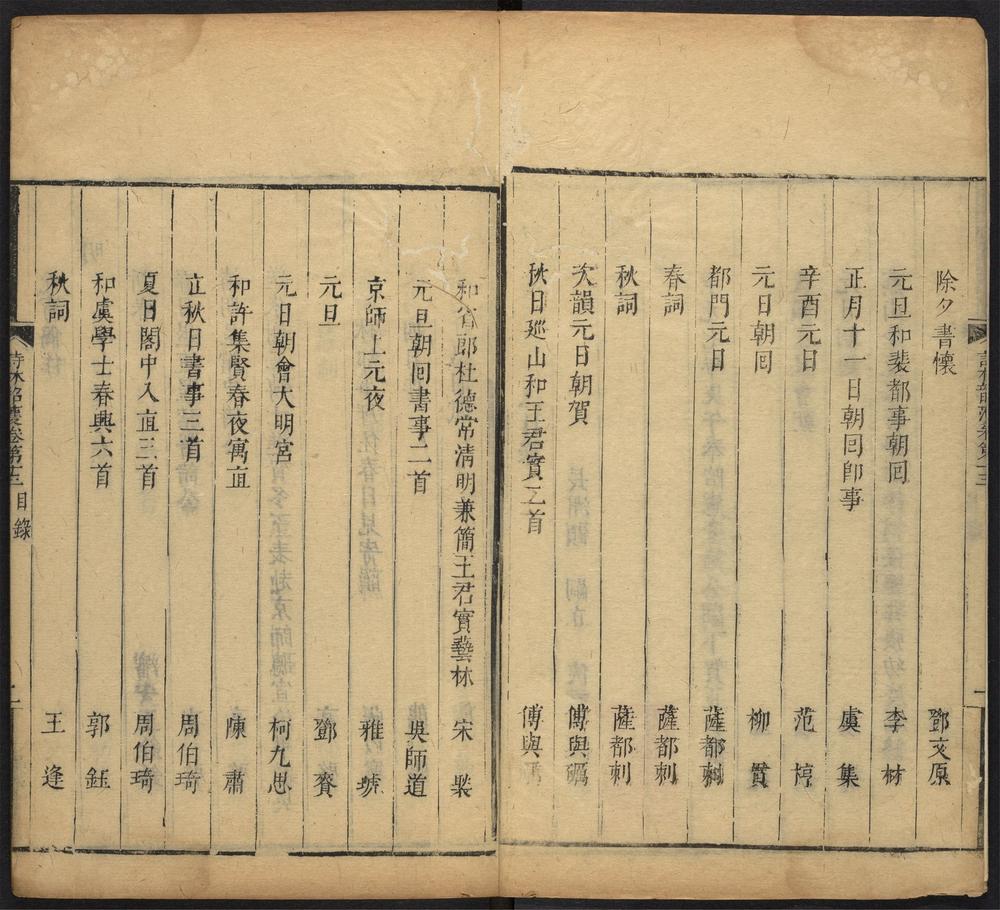 除夕書懷 鄧文原
元旦和裴都事朝囘 李材
正月十一日朝囘卽事 虞集
辛酉元日 范梈
元日朝囘 柳貫
都門元日 薩都剌
春詞 薩都剌
秋詞 薩都剌
次韻元日朝賀 傅與礪
秋日廵山和王君實二首 傅與
和省郎杜德常清明兼簡王君實藝林 宋褧
元旦朝囘書事二首 吳師道
京師上元夜 雅琥
元旦 鄧賚
元日朝會大明宮 柯九思
和許集賢春夜寓直 陳肅
立秋日書事三首 周伯琦
夏日閣中入直三首 周伯琦
和虞學士春興六首 郭鈺
秋詞 王逢
卷第十三 目錄 二